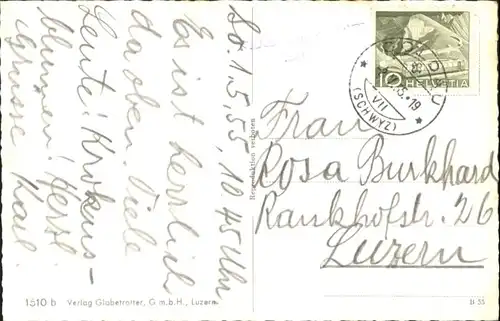 So. 1.5.55, 10.45 Uhr
Es ist herrlich
da oben. Viele
Leute! Krokus-
blumen! Herzl.
Grüsse Karl
1510 b Verlag Globetrotter, G.m.b.H., Luzern
Reproduktion verboten
10 HELVETIA
(SCHWYZ)
VII
Frau
Rosa Burkhard
Rankhofstr. 26
Luzern
D 55